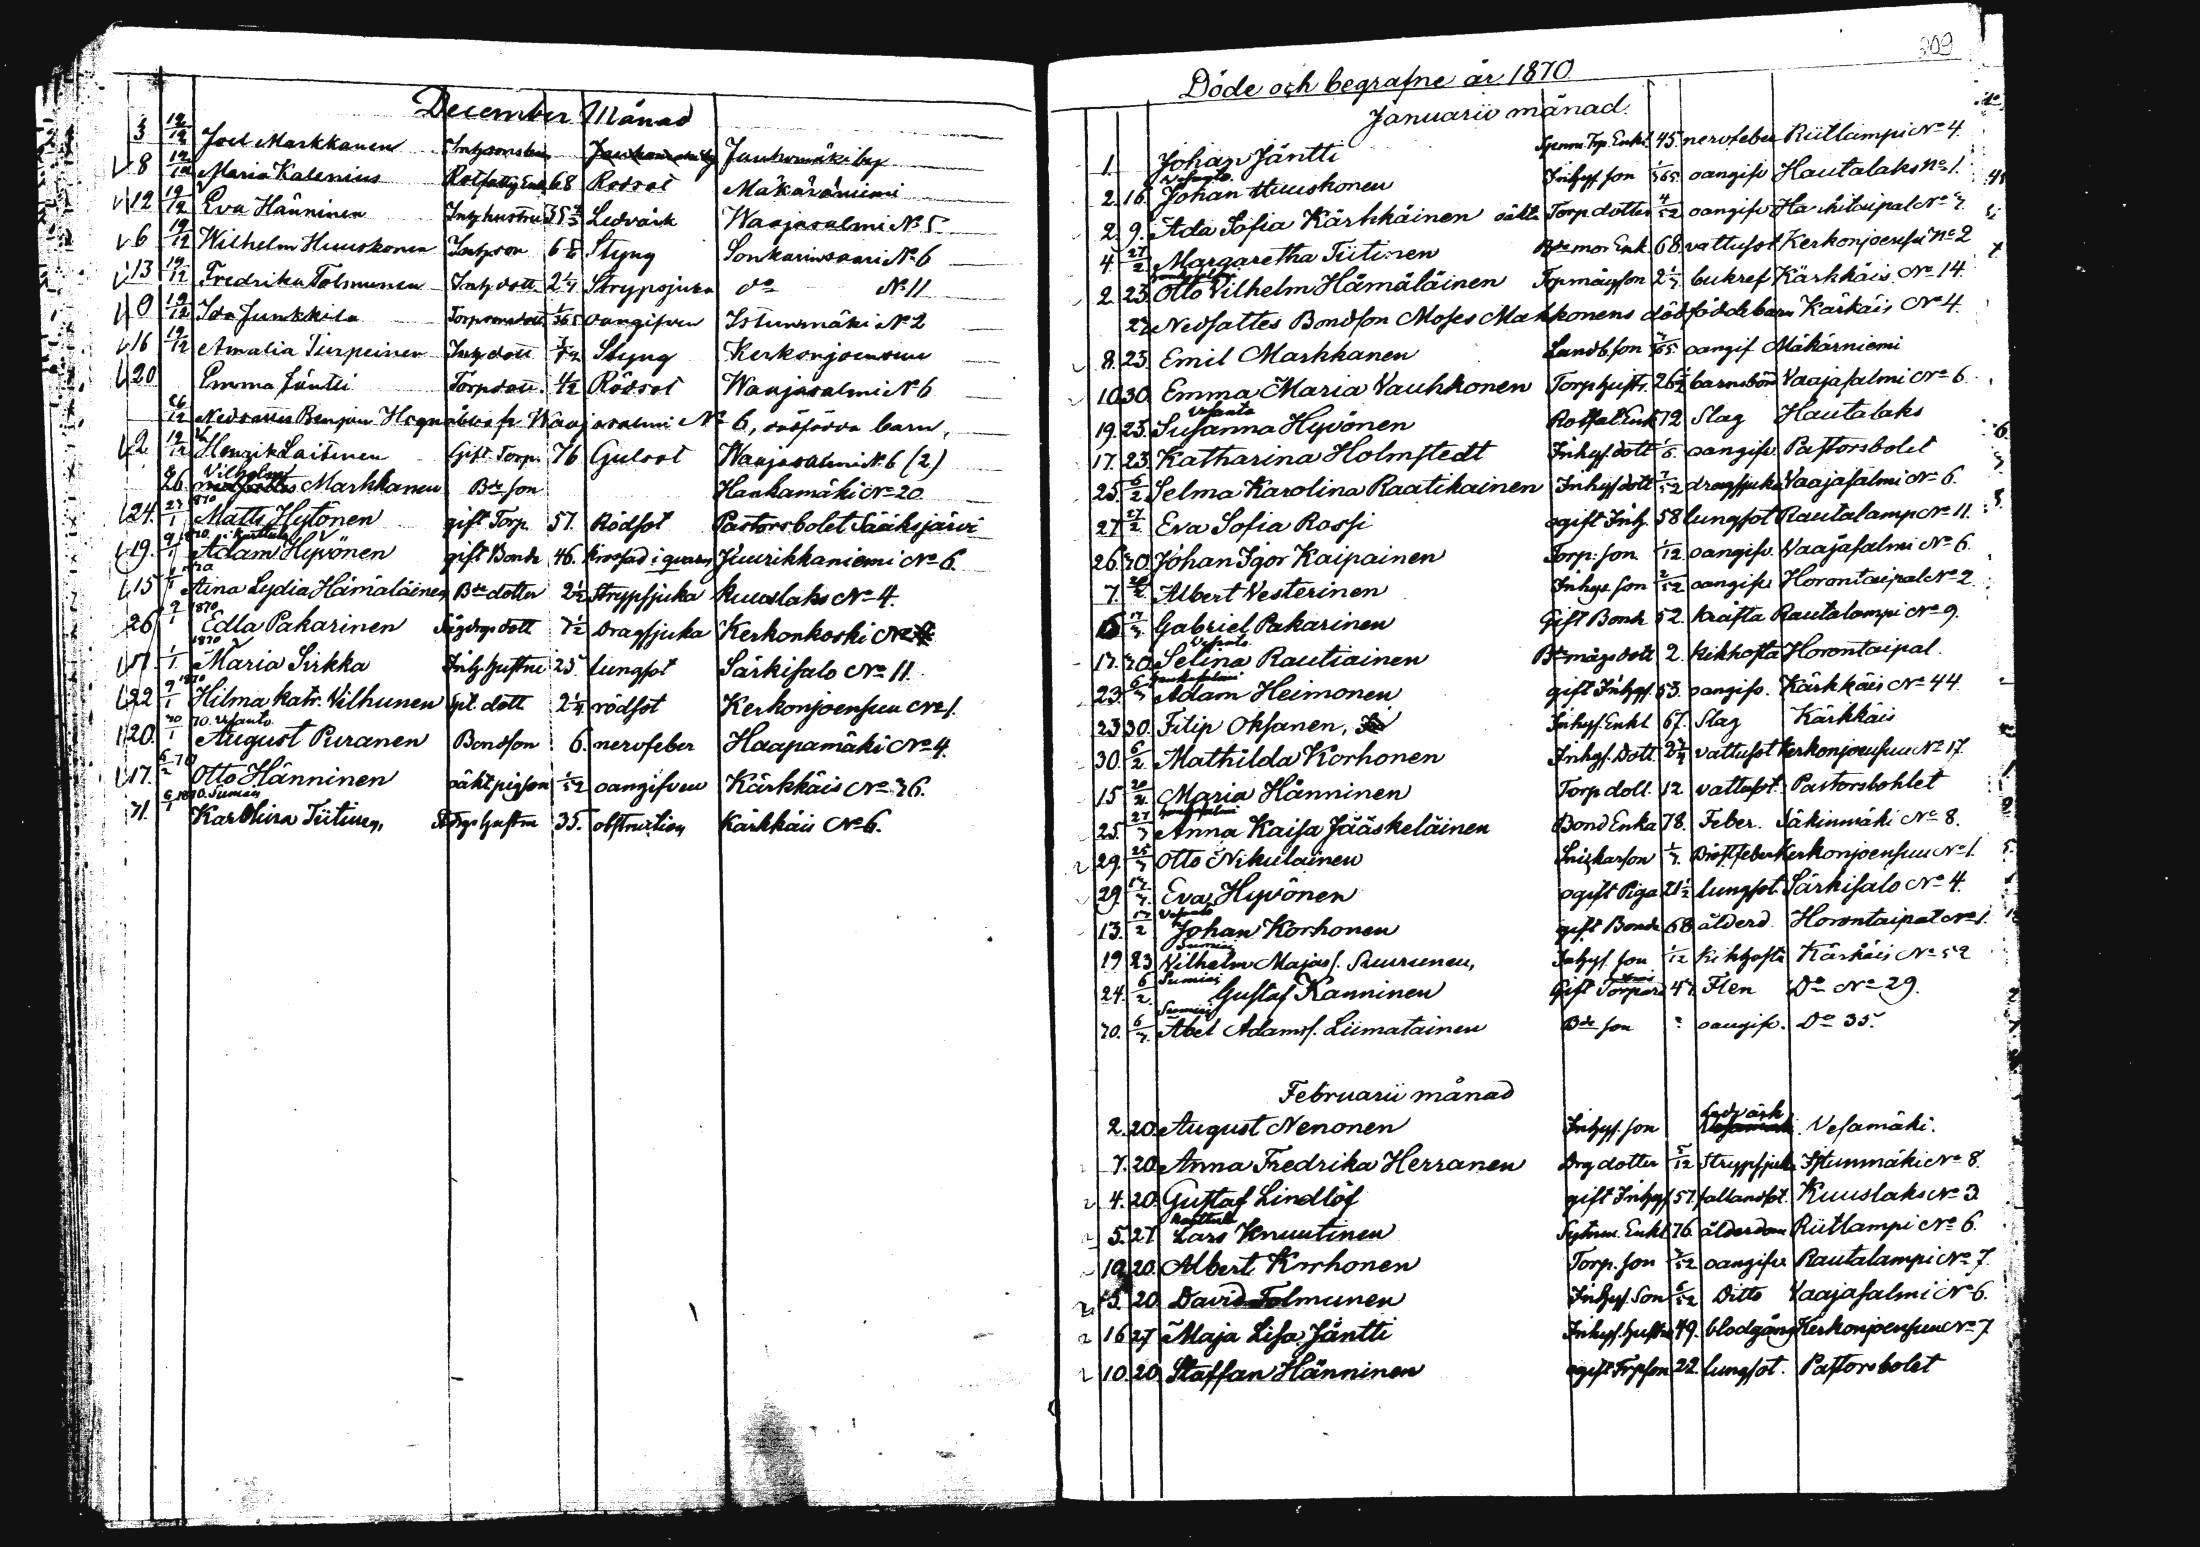 December Månad
3 12/12 Joel Markkanen Jauhomäki by
8 12/12 Maria Kalenius 68 Rödsot Mäkäräniemi
12 19/12 Eva Hänninen Inhhustru 35 Ledvärk Waajasalmi No 5
6 19/12 Wilhelm Huuskonen Inhson 68 Styng Sonkarinsaari No 6
13 19/12 Fredrika Tolmunen Inh dott 2 1/4 Strypsjuka do No 11
9 19/12 Ida Junkkila 1/365 oangifven Istunmäki No 2
16 19/12 Amalia Turpeinen Inh dott Styng Kerkonjoensuu
20 Emma Jäntti Torp dott. 4/12 Rödsot Waajasalmi No 6
26/12 Benjam Waajasalmi No 6, dödfödda barn,
2 12/12 Henrik Laitinen Gift Torp. 76 Gulsot Waajasalmi No 6 (2)
26. Vilhelm Markkanen Bde son Hankamäki No 20
24. 23/1 1870 Matts Hytönen gift Torp. 57. Rödsot Pastorsbolet Sääksjärvi
19. 9/1 Adam Hyvönen gift Bonde 46. Juurikkaniemi No 6.
15 Aina Lydia Hämäläinen Bde dotter 2 1/2 Strypsjuka Kuuslaks No 4.
26 2/1 1870 Edla Pakarinen 7 1/2 Dragsjuka Kerkonkoski
1/1 1870 Maria Sirkka Inh hustru 25 lungsot Särkisalo No 11
22 9/1 1870 Hilma Katr. Vilhunen dott 2 1/4 rödsot Kerkonjoensuu No 1.
20. 30/1 70. Vesanto August Puranen Bondson 6. nervfeber Haapamäki No 4.
17. 6/2 70 Otto Hänninen oäkt pigson 1/52 oangifven Kärkkäis No 36.
31. 6/1 1870. Sumiais Karolina Tiitinen, hustru 35. obstruction Kärkkäis No 6.
209
Döde och begrafne år 1870
Januarii månad.
1. Johan Jäntti 45. nervfeber Riitlampi No 4.
2. 16. Vesanto Johan Huuskonen Inhys son 1/365 oangifv Hautalaks No 1.
2. 9. Ada Sofia Kärkkäinen oäkta Torp dotter 4/52 oangifv No 3.
4 27/2 Margaretha Tiitinen Bde mor Enk. 68. vattusot Kerkonjoensuu No 2
2. 23. Otto Vilhelm Hämäläinen Torpmågson bukref Kärkkäis No 14.
27 Nedsattes Bondson Moses Markkonens dödfödde barn Kärkäis No 4.
8. 23. Emil Markkanen Landb. son oangif Mäkärniemi
10. 30. Emma Maria Vauhkonen Torp hustr. 26 1/2 barnsbörd Vaajasalmi No 6.
19. 23. Vesanto Susanna Hyvönen Rotfat Enk 72 Slag Hautalaks
17. 23. Katharina Holmstedt Inhys dott oangifv. Pastorsbolet
25. 6/2 Selma Karolina Raatikainen Inhys dott 7/52 dragsjuka Vaajasalmi No 6.
27 27/2 Eva Sofia Rossi ogift Inh. 58 lungsot Rautalamp No 11.
26. 30. Johan Igor Kaipainen Torp. son 1/12. oangifv. Vaajasalmi No 6.
7. Albert Vesterinen Inhys. son 2/52 oangifv Horontaipal No 2
6 Gabriel Pakarinen Gift Bonde 52. kräfta Rautalampi No 9.
17. 30. Vesanto Selina Rautiainen Bde mågs dott 2. kikhosta Horontaipal.
23. 6/3 Adam Heimonen gift Inhys. 53. oangifv. Kärkkäis No 44.
23 30. Filip Oksanen, Inhys. Enkl 67. Slag Kärkkäis
30. 6/2 Mathilda Korhonen Inhys. Dott. 2 3/4 vattusot Kerkonjoensuu No 17.
15 Maria Hänninen Torp dott. 12 vattusot. Pastorsbohlet
25. 27/3 Anna Kaisa Jääskeläinen Bond Enka 78. Feber. Säkinmäki No 8.
29. 25/3 Otto Nikulainen Kerkonjoensuu No 1.
29. Eva Hyvönen ogift Piga 21 1/2 lungsot. Särkisalo No 4.
13. 13/2 Vesanto Johan Korhonen gift Bonde 68 ålderd. Horontaipal No 1.
19 23 Sumiais Vilhelm Majas s. Ruuxunen, Inhys. son 1/12 Kikhosta Kärkäis No 52
24. 6/2. Sumiais Gustaf Kanninen Gift Torpare 47. Flen Do No 29.
30. 6/3. Sumiais Abel Adams s. Liimatainen Bde son ? oangifv. Do 35.
Februarii månad
2. 20. August Nenonen Inhys. son Ledvärk Vesamäki.
7. 20. Anna Fredrika Herranen Drg dotter 5/12 Strypsjuk Istunmäki No 8.
4. 20. Gustaf Lindlöf gift Inhys 57. fallandsot. Kuuslaks No 3.
5. 27. Karttula Lars Knuutinen Enkl 76. ålderdom Riitlampi No 6.
10. 20. Albert Korhonen Torp. son 3/52 oangifv Rautalampi No 7.
15. 20. David Tolmunen Inhys. Son Ditto Vaajasalmi No 6.
16 27 Maja Lisa Jäntti Inhys. hustru 49. blodgång Kerkonjoensuu No 7
10. 20. Staffan Hänninen ogift Trpson 22. lungsot. Pastorsbolet